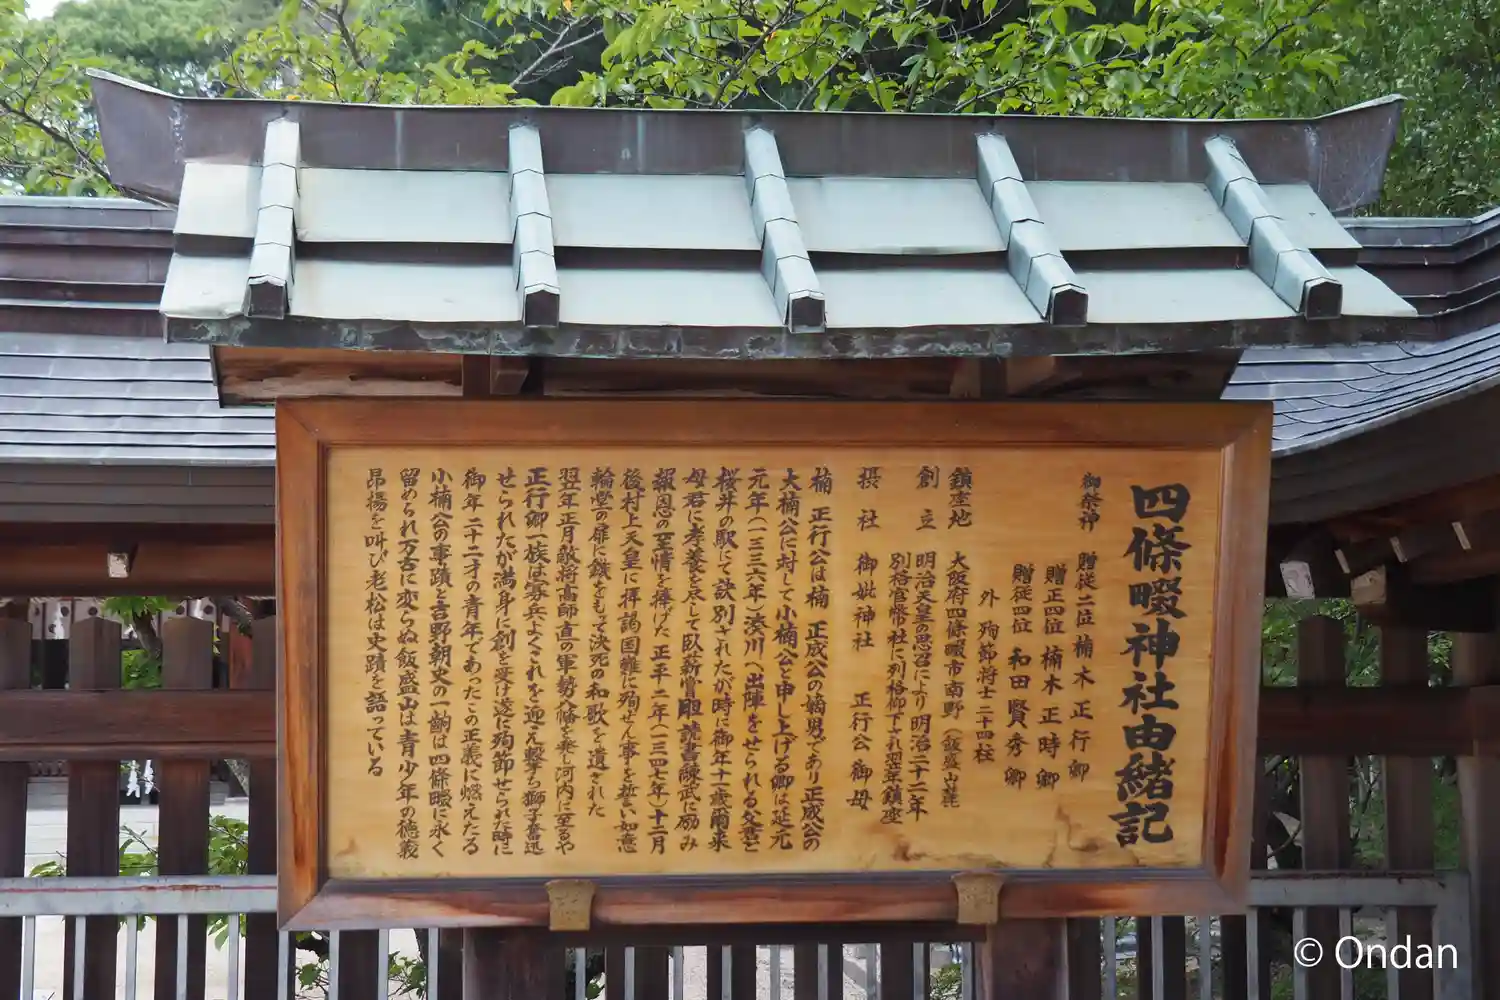 四條畷神社由緒記
御祭神 贈従二位 楠木正行卿
贈正四位 楠木正時卿
贈従四位 和田賢秀卿
外 殉節将士二十四柱
鎮座地 大阪府四條畷市南野(飯盛山麓
創立 明治天皇の思召により明治二十二年
別格官幣社に列格仰下され翌年鎮座
摂社 御妣神社 正行公御母
楠 正行公は楠 正成公の嫡男であり正成公の
大楠公に対して小楠公と申し上げる卿は延元
元年(一三三六年)湊川へ出陣をせられる父君と
桜井の駅にて訣別されたが時に御年十一歳爾来
母君に孝養を尽して臥薪嘗胆読書練武に励み
報恩の至情を捧げた正平二年(一三四七年)十二月
後村上天皇に拝謁国難に殉ぜん事を誓い如意
輪堂の扉に鏃をもって決死の和歌を遺された
翌年正月敵将高師直の軍勢八幡を発し河内に至るや
正行卿一族は寡兵よくこれを迎え撃ち獅子奮迅
せられたが満身に創を受け遂に殉節せられた時に
御年二十二才の青年であったこの正義に燃えたる
小楠公の事蹟と吉野朝史の一齣は四條畷に永く
留められ万古に変らぬ飯盛山は青少年の徳義
昂揚を叫び老松は史蹟を語っている
© Ondan